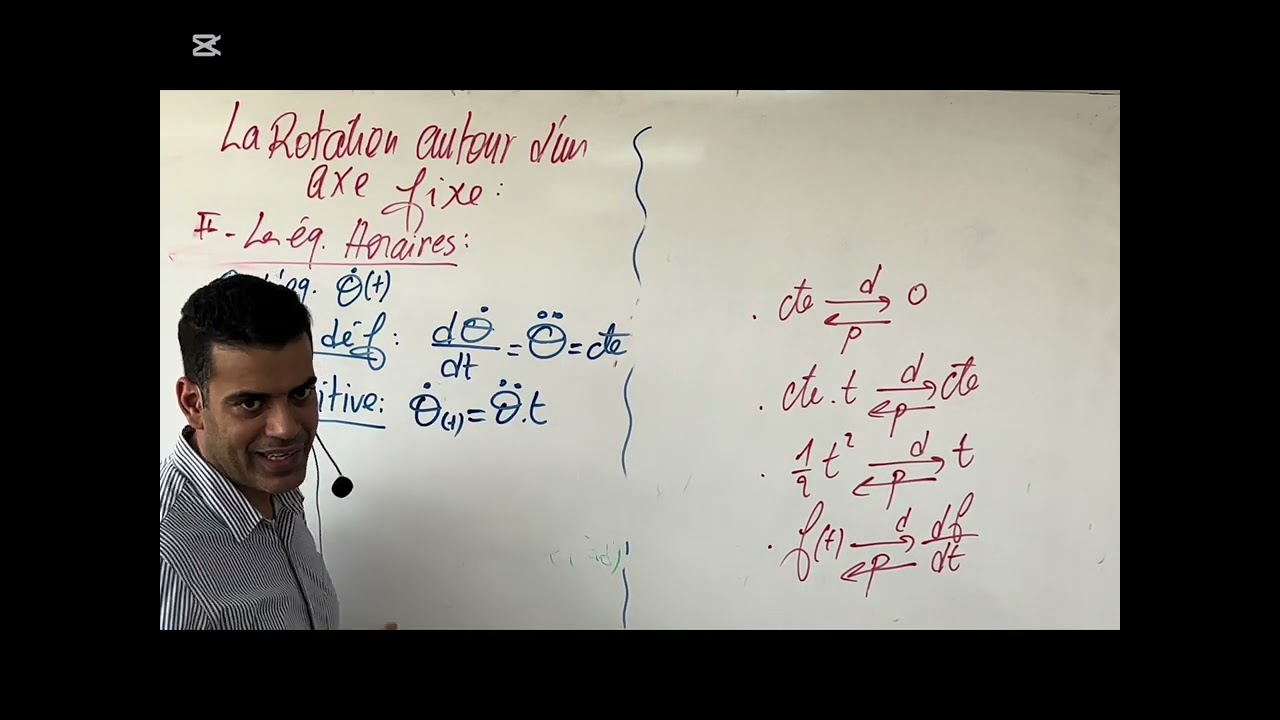 La Rotation autour d'un
axe fixe:
II - Les éq. Horaires:
éq. θ̇(t)
déf: dθ̇/dt = θ̈ = cte
itive: θ̇(t) = θ̈.t
. cte d→ ←p 0
. cte.t d→ ←p cte
. 1/2 t² d→ ←p t
. f(t) d→ ←p df/dt